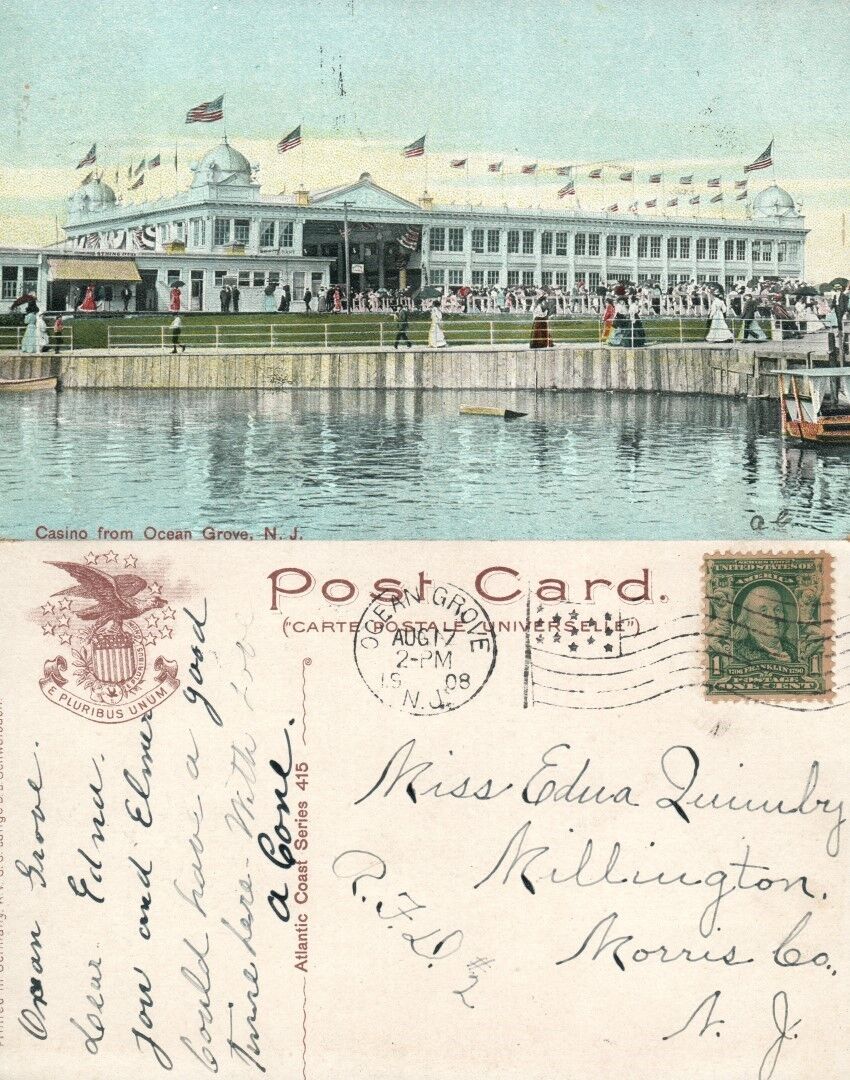 Casino from Ocean Grove, N. J.
a C.
Post Card.
("CARTE POSTALE UNIVERSELLE")
E PLURIBUS UNUM
OCEAN GROVE
AUG 17
2-PM
19 08
N.J.
SERIES 1902
UNITED STATES
OF AMERICA
1 1
1706 FRANKLIN 1790
POSTAGE
ONE CENT
Ocean Grove.
Dear Edna.
you and Elmer
Could have a good
time here - With Love
a Cone.
Atlantic Coast Series 415
Miss Edna Quimby
Millington.
Morris Co.,
N. J.
R. F. D. #2
Printed in Germany.